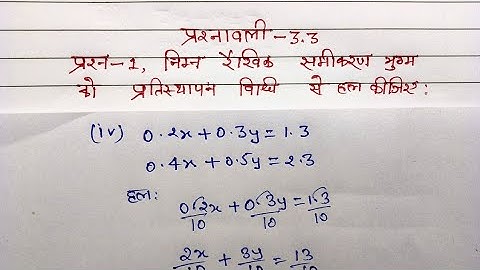 प्रश्नावली - 3.3
प्रश्न-1, निम्न रैखिक समीकरण युग्म
को प्रतिस्थापन विधि से हल कीजिए:
(iv) 0.2x + 0.3y = 1.3
0.4x + 0.5y = 2.3
हल: 02x/10 + 03y/10 = 13/10
2x/10 + 3y/10 = 13/10